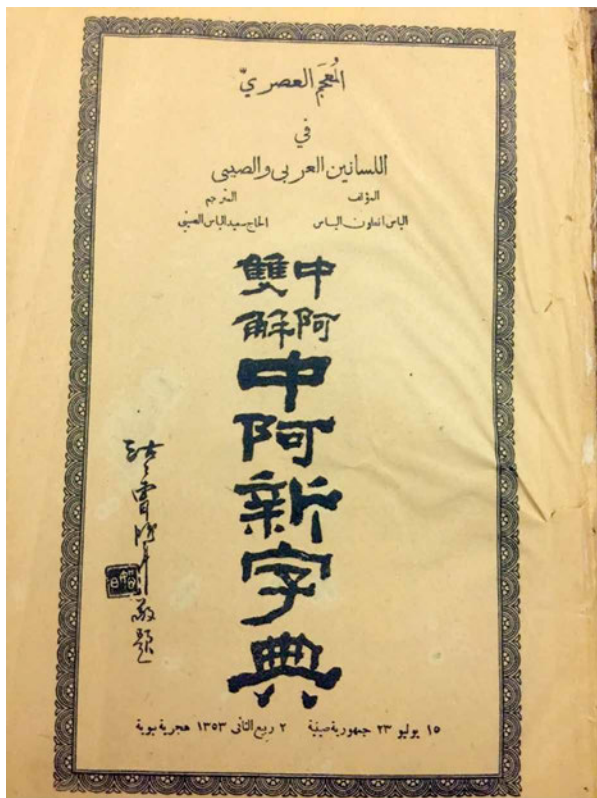 المُعجَم العصريّ
في
اللسانين العربي والصيني
المؤلف المترجم
الياس انطون الياس الحاج سعيد الياس الصيني
中阿
雙解
中阿新字典
敬題
١٥ يوليو ٢٣ جمهورية صينية ٢ ربيع الثاني ١٣٥٣ هجرية نبوية